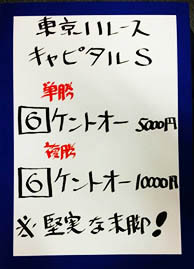 東京11レース
キャピタルS
単勝
6 ケントオー 5000円
複勝
6 ケントオー 10000円
※堅実な末脚!